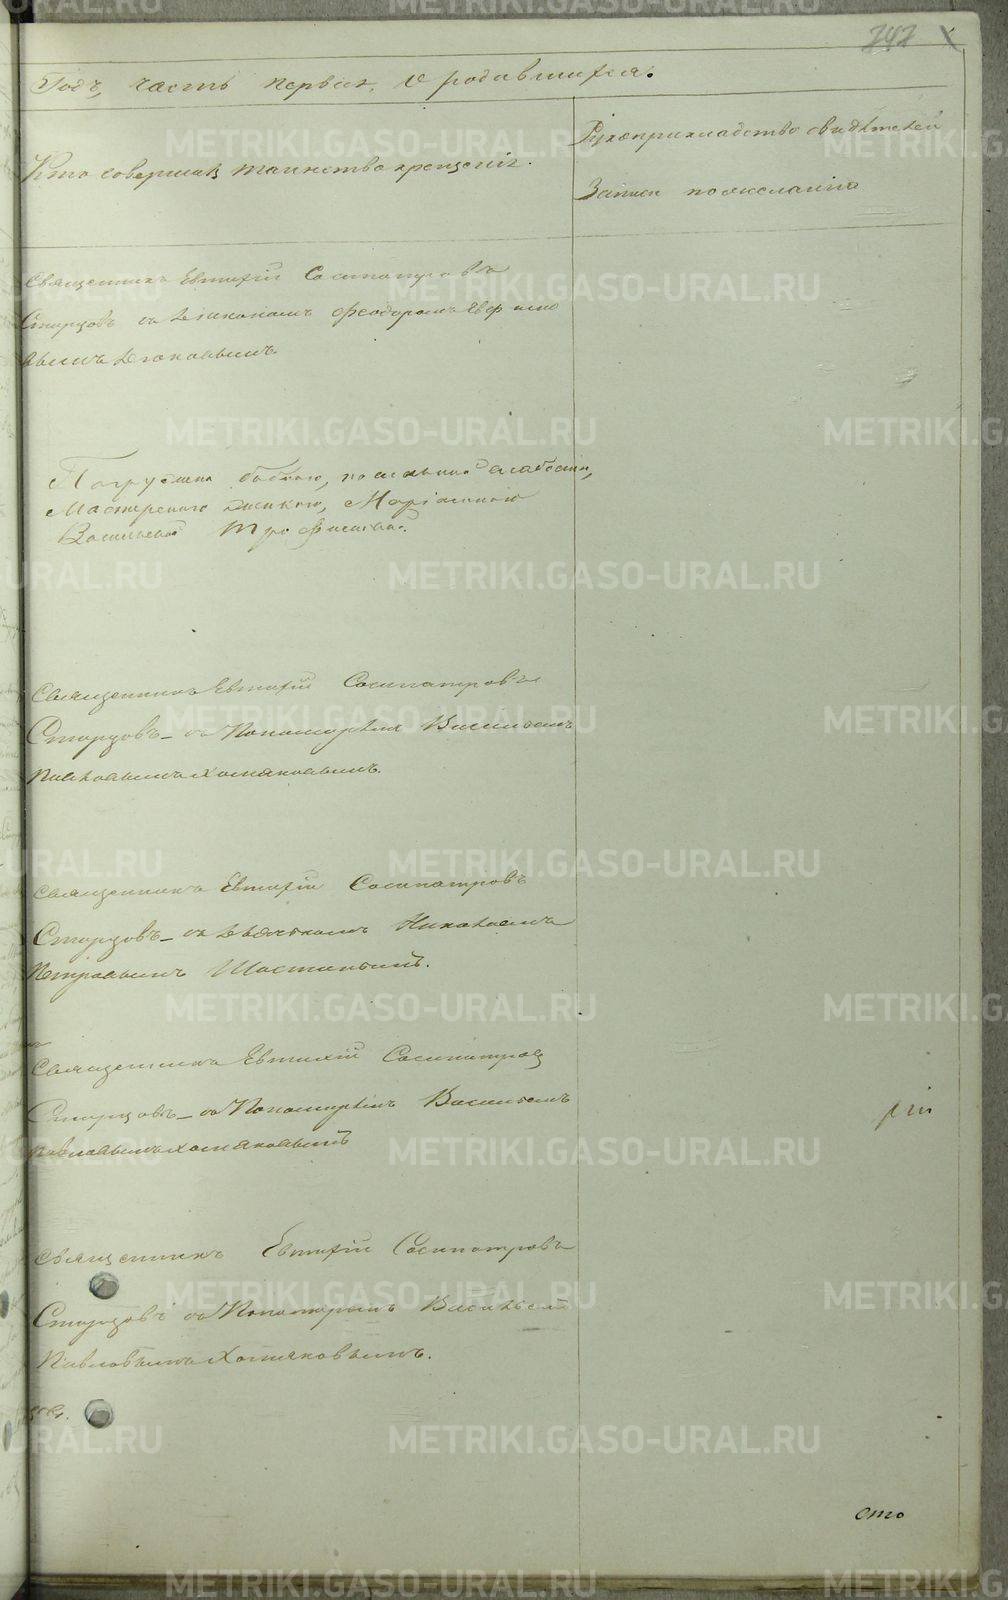 242
Годъ, часть первая, о родившихся.
Кто совершалъ таинство крещенія.
Рукоприкладство свидѣтелей
Записи по желанію
Священникъ Евтихій Сосипатровъ
Старцовъ съ Діакономъ Феодоромъ
Діаконовымъ.
Погружена бабкою, по сильной слабости,
Мастерскою женкою, Маріамною
Васильевой Трофимовой.
Священникъ Евтихій Сосипатровъ
Старцовъ - съ Пономаремъ Васильемъ
Павловымъ Хомяковымъ.
Священникъ Евтихій Сосипатровъ
Старцовъ - съ Дьячкомъ Николаемъ
Петровымъ
Священникъ Евтихій Сосипатровъ
Старцовъ - съ Пономаремъ Васильемъ
Павловымъ Хомяковымъ
Священникъ Евтихій Сосипатровъ
Старцовъ съ Пономаремъ Васильемъ
Павловымъ Хомяковымъ.
сто
METRIKI.GASO-URAL.RU